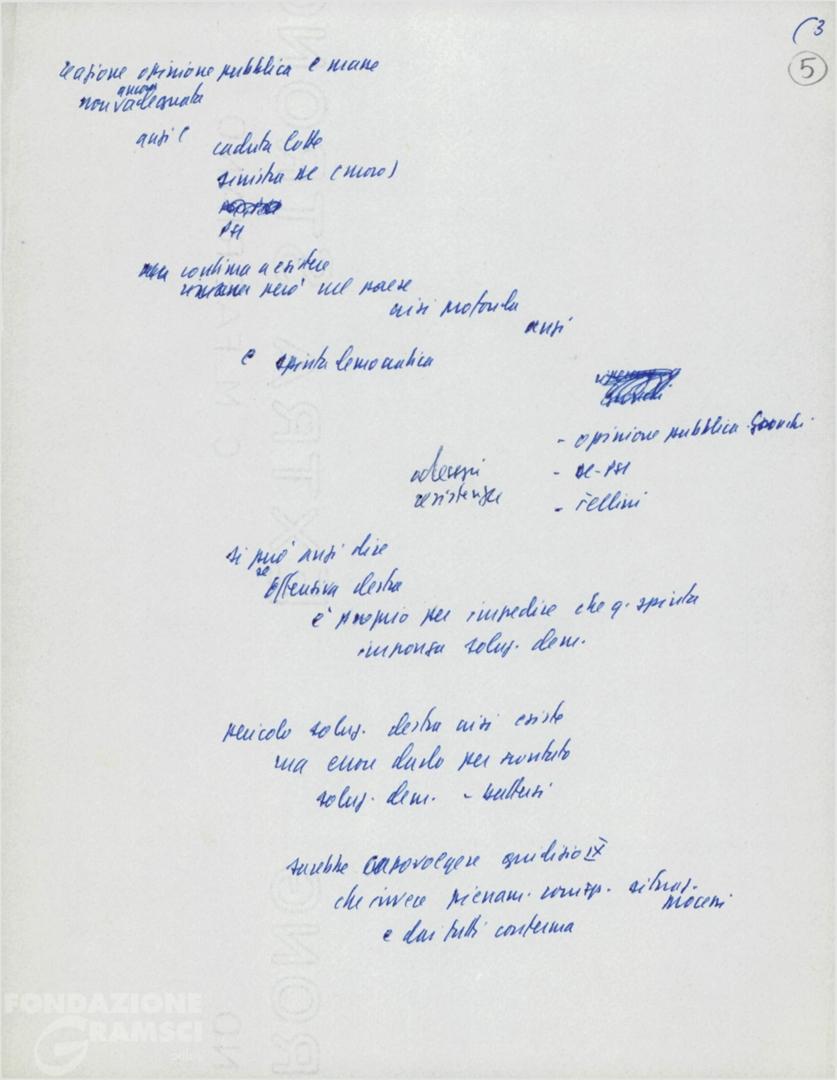 (3
5
reazione opinione pubblica e masse
ancora
non adeguata
anzi (
caduta lotte
sinistra DC (Moro)
PSI
ma continua a esistere
rimane però nel paese
crisi profonda
anzi
e spinta democratica
- opinione pubblica. Gronchi.
adesioni
- DC-PSI
resistenze
- Fellini
si può anzi dire
se
offensiva destra
è proprio per impedire che q. spinta
imponga soluz. dem.
pericolo soluz. destra crisi esiste
ma errore darlo per scontato
soluz. dem. - battersi
sarebbe capovolgere giudizio IX
che invece pienam. corrisp. situaz.
processi
e dai fatti conferma
FONDAZIONE
GRAMSCI